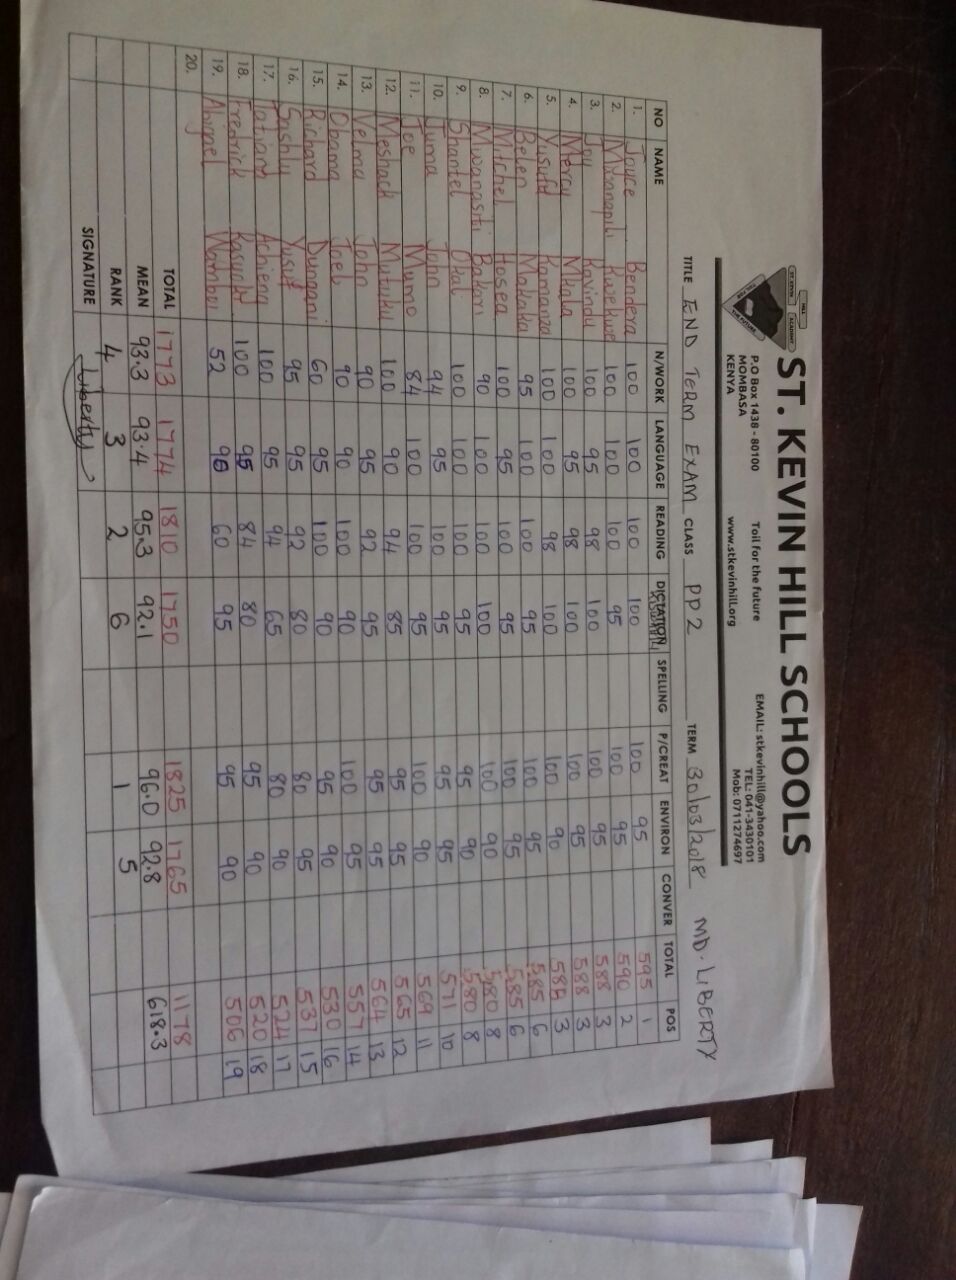 ST. KEVIN HILL SCHOOLS
ST. KEVIN HILL ACADEMY
TOIL FOR THE FUTURE
P.O Box 1438 - 80100 Toil for the future EMAIL: stkevinhill@yahoo.com
MOMBASA www.stkevinhill.org TEL: 041-3430101
KENYA Mob: 0711274697
TITLE END TERM EXAM CLASS PP2 TERM 30/03/2018 MD. LIBERTY
NO NAME N/WORK LANGUAGE READING DICTATION SPELLING P/CREAT ENVIRON CONVER TOTAL POS
1. Joyce Bendera 100 100 100 100 100 95 595 1
2. Mwanapili Kwekwe 100 100 100 95 100 95 590 2
3. Joy Kavindu 100 95 98 100 100 95 588 3
4. Mercy Mkala 100 95 98 100 100 95 588 3
5. Yusufd Kamanza 100 100 98 100 100 90 588 3
6. Belen Makaka 95 100 100 95 100 95 585 6
7. Mitchel Hosea 100 95 100 95 100 95 585 6
8. Mwanasiti Bakari 90 100 100 100 100 90 580 8
9. Shantel Okal 100 100 100 95 95 90 580 8
10. Juma John 94 95 100 95 95 95 571 10
11. Joe Mumo 84 100 100 95 100 90 569 11
12. Meshack Mutuku 100 90 94 85 95 95 565 12
13. Velma John 90 95 92 95 95 95 564 13
14. Obama Joel 90 90 100 90 100 95 557 14
15. Richard Dungani 60 95 100 90 95 90 530 16
16. Sashly Yusuf 95 95 92 80 80 95 537 15
17. Tatiana Achieng 100 95 94 65 80 90 524 17
18. Fredrick 100 95 84 80 95 90 520 18
19. Abigael Wambui 52 90 60 95 95 90 506 19
20.
TOTAL 1773 1774 1810 1750 1825 1765 1178
MEAN 93.3 93.4 95.3 92.1 96.0 92.8 618.3
RANK 4 3 2 6 1 5
SIGNATURE Liberty